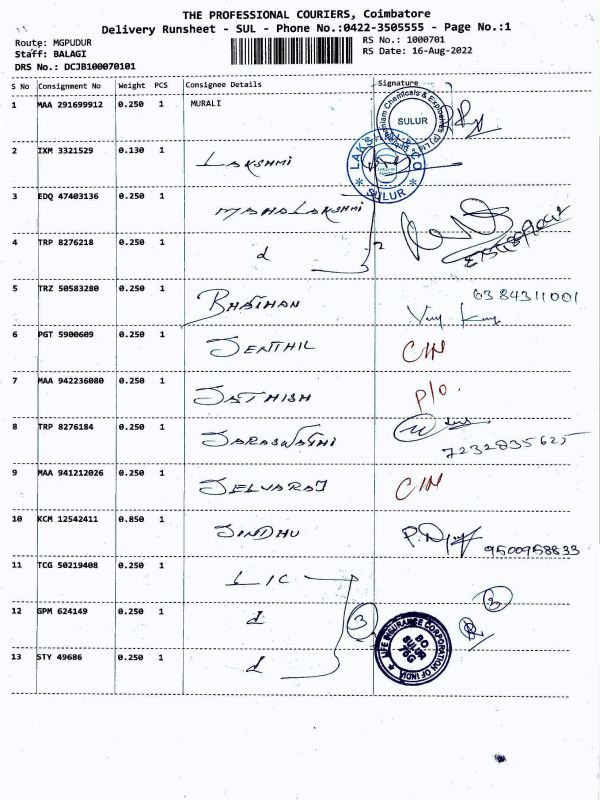 THE PROFESSIONAL COURIERS, Coimbatore
Delivery Runsheet - SUL - Phone No.:0422-3505555 - Page No.:1
Route: MGPUDUR
RS No.: 1000701
Staff: BALAGI
RS Date: 16-Aug-2022
DRS No.: DCJB100070101
S No Consignment No Weight PCS Consignee Details Signature
1 MAA 291699912 0.250 1 MURALI
SULUR
2 IXM 3321529 0.130 1 LAKSHMI
SULUR
3 EDQ 47403136 0.250 1 MAHALAKSHMI
4 TRP 8276218 0.250 1 d 2
5 TRZ 50583280 0.250 1 6384311001
6 PGT 5900609 0.250 1 SENTHIL CIN
7 MAA 942236080 0.250 1 SATHISH P/O.
8 TRP 8276184 0.250 1 SARASWATHI
7232835625
9 MAA 941212026 0.250 1 SELVARAJ CIN
10 KCM 12542411 0.850 1 SINDHU
9500958833
11 TCG 50219408 0.250 1 LIC
3
12 GPM 624149 0.250 1 d 3
LIFE INSURANCE CORPORATION OF INDIA
BO
SULUR
76G
13 STY 49686 0.250 1 d